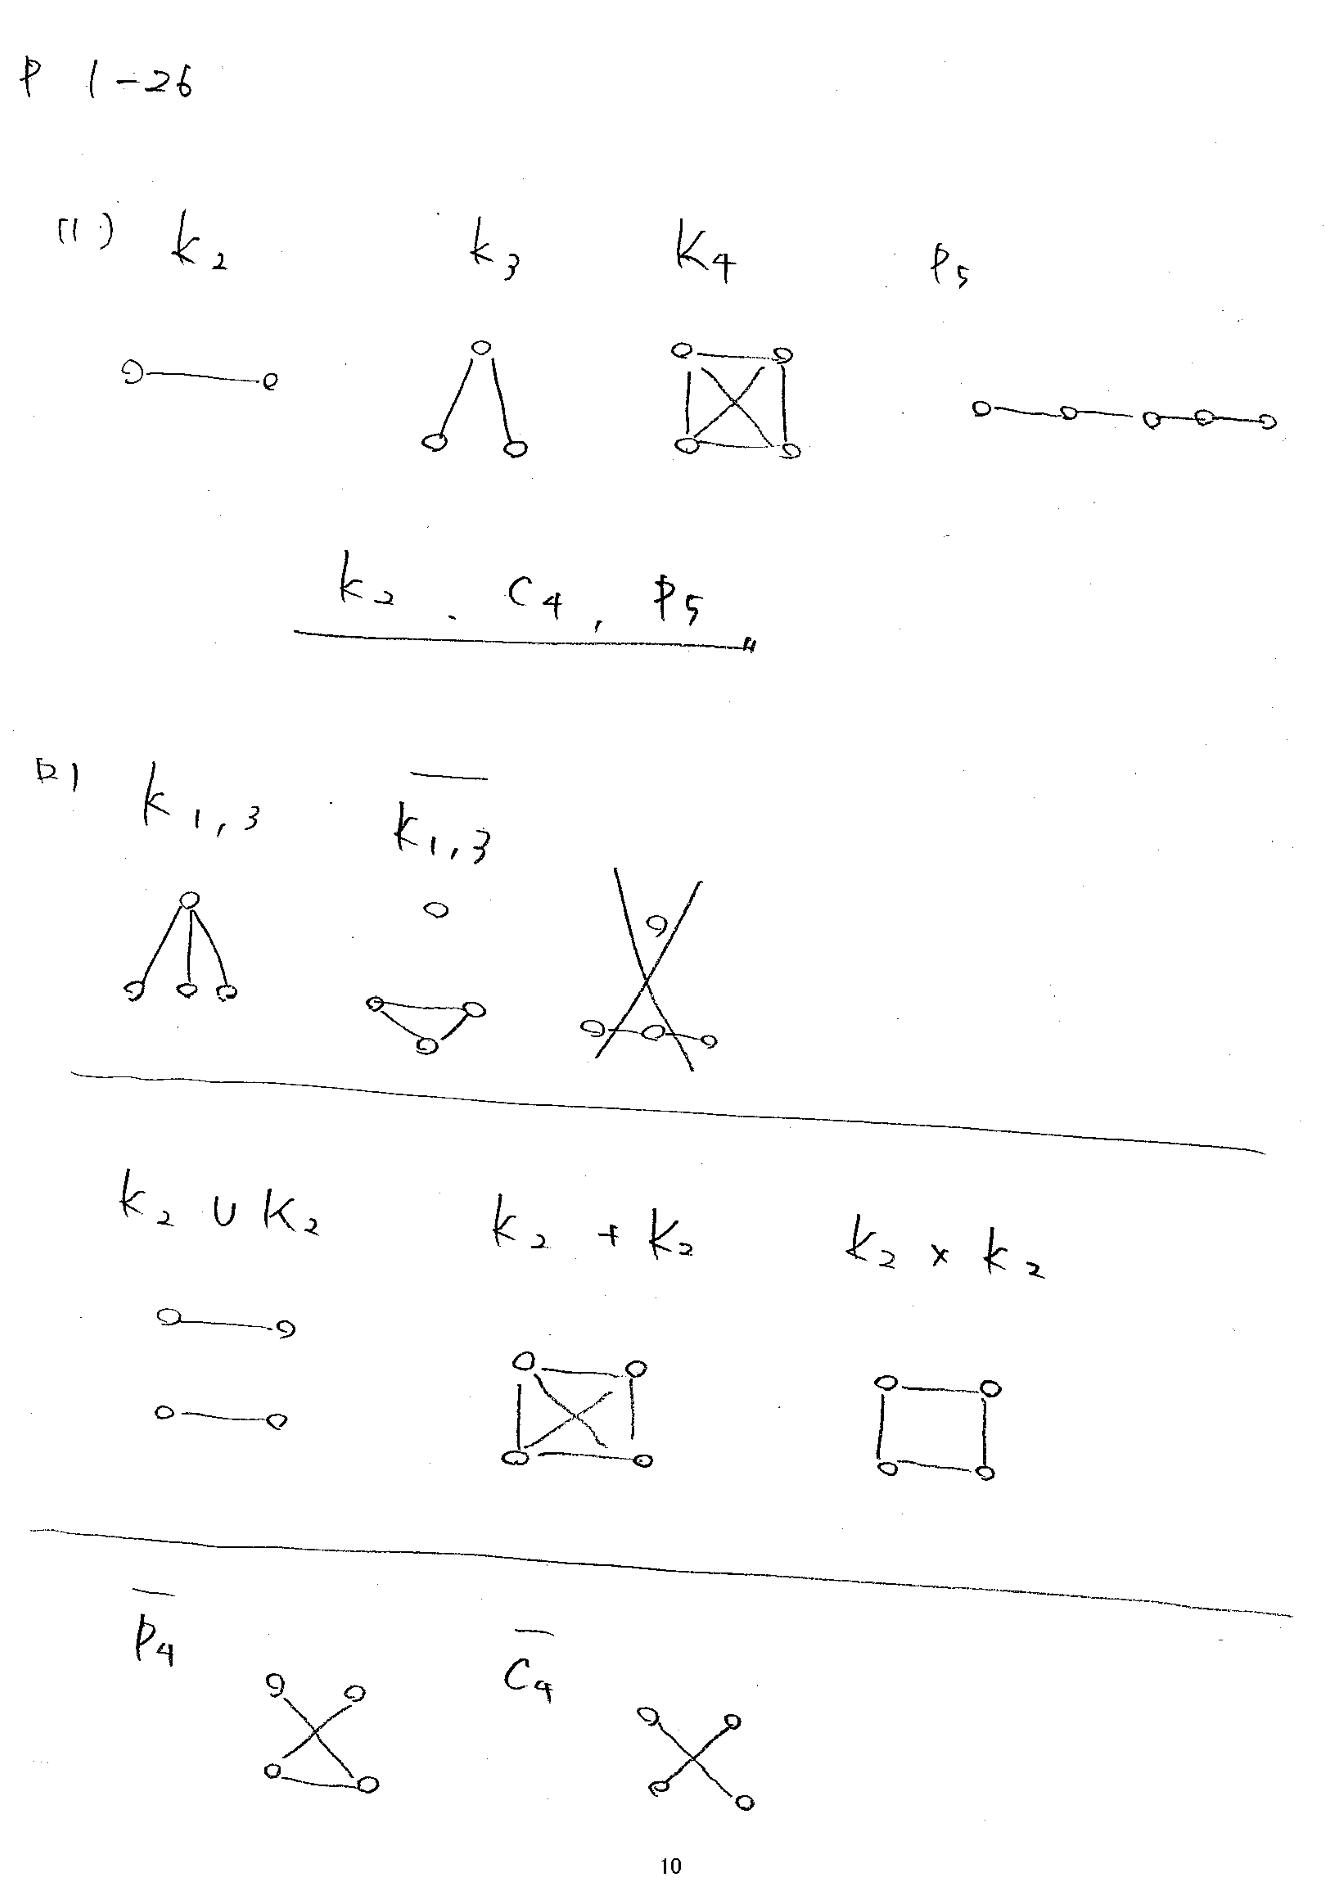 P 1-26
(1) k2 k3 K4 P5
k2 . C4, P5
k1,3 k̅1,3
k2 ∪ K2 k2 + K2 k2 × k2
P̅4 C̅4
10